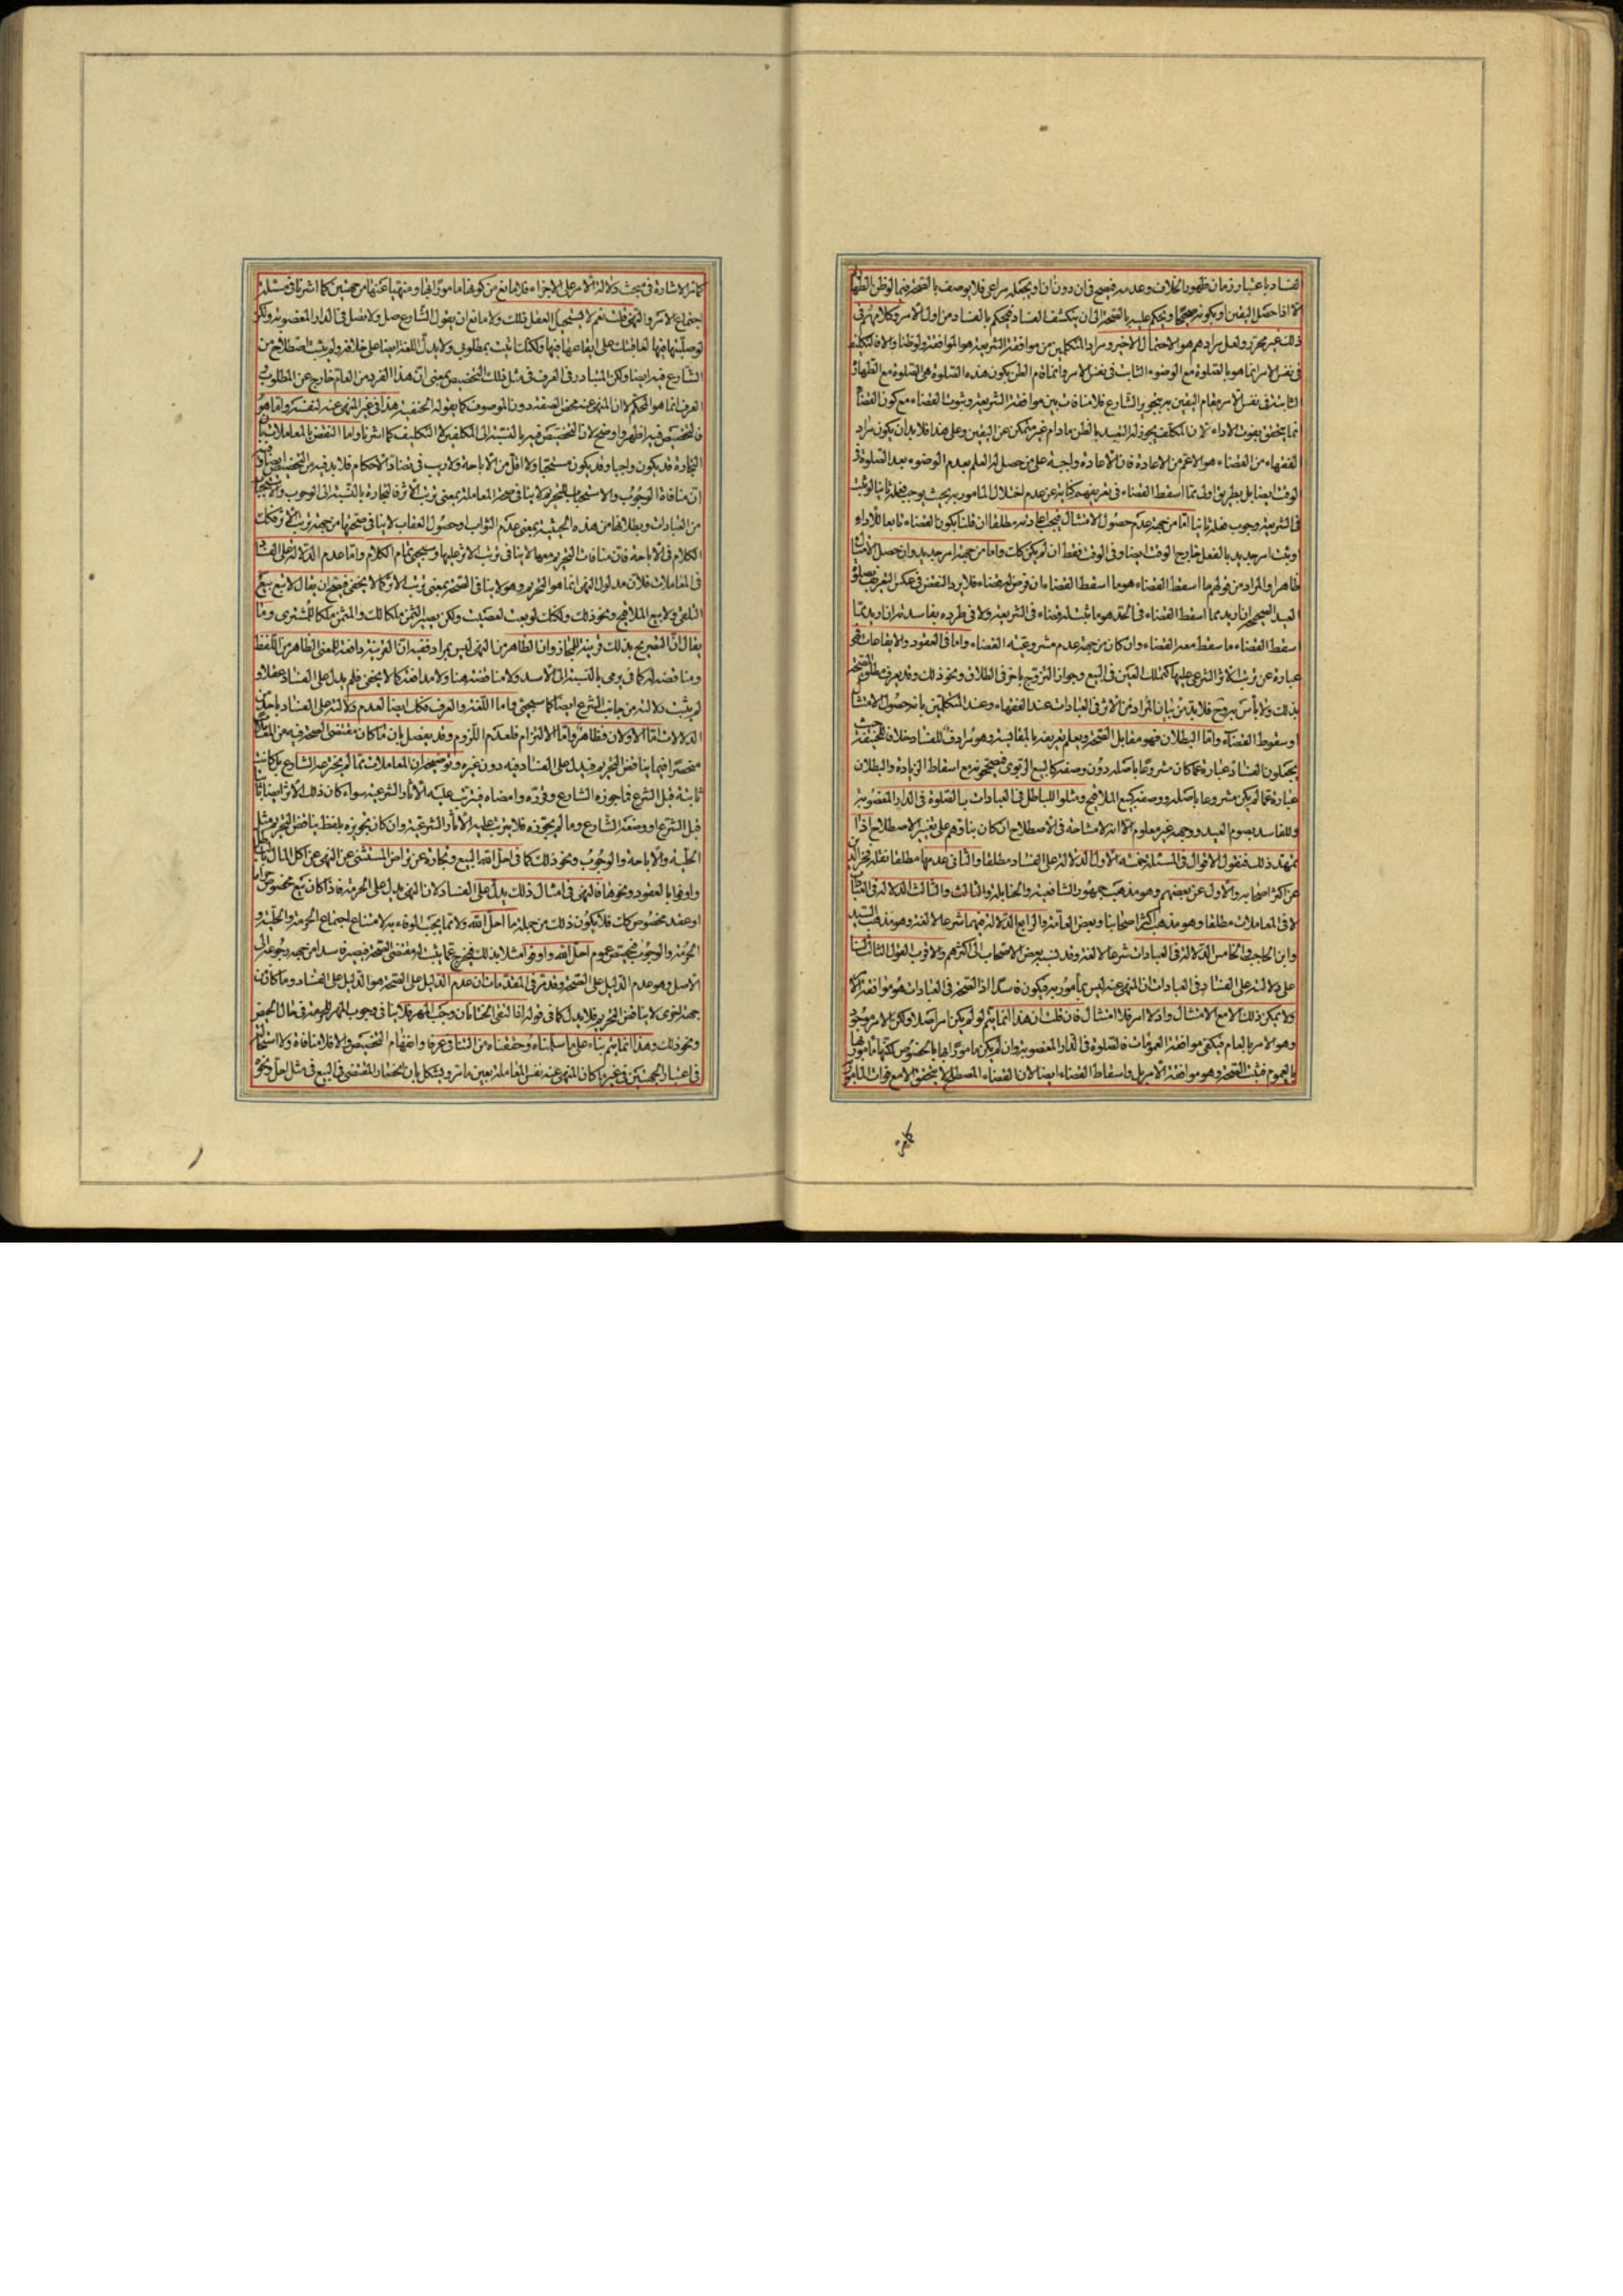 الفساد باعتبار زمان ظهور الخلاف وعدمه فيصح في آن دون آن او يجعله مراعى فلا يوصف بالصحة فيما لو ظن الطهارة
الا اذا حصل اليقين او يكونه صحيحا ويحكم عليه بالصحة الى ان ينكشف الفساد فيحكم بالفساد من اول الامر وكلامهم في
ذلك غير محرر ولعل مرادهم هو الاحتمال الاخير ومراد المتكلمين من موافقة الشريعة هو الموافقة ولو ظنا والا فالتكليف
في نفس الامر انما هو بالصلوة مع الوضوء الثابت في نفس الامر وانما قام الظن بكون هذه الصلوة هي الصلوة مع الطهارة
الثابتة في نفس الامر مقام اليقين به بتجويز الشارع فلا منافات بين موافقة الشريعة وثبوت القضاء مع كون القضاء
انما يتحقق بفوت الاداء لان المكلف يجوز له التعبد بالظن ما دام غير متمكن عن اليقين وعلى هذا فلا بد ان يكون مراد
الفقهاء من القضاء هو الاعم من الاعادة فان الاعادة واجبة على من حصل له العلم بعدم الوضوء بعد الصلوة في
الوقت ايضا بل بطريق اولى فما اسقط القضاء في تعريفهم كناية عن عدم اختلال المأمور به بحيث يوجب فعله ثانيا لو ثبت
في الشريعة وجوب فعله ثانيا اما من جهة عدم حصول الامتثال فيجب اعادته مطلقا ان قلنا بكون القضاء تابعا للاداء
او ثبت امر جديد بالفعل خارج الوقت ايضا وفي الوقت فقط ان لم يكن كك واما من جهة امر جديد وان حصل الامتثال
ظاهرا والمراد من قولهم ما اسقط القضاء هو ما اسقط القضاء ان فرض له قضاء فلا يرد النقض في عكس التعريف بصلوة
العيد الصحيحة ان اريد بما اسقط القضاء في الحد هو ما ثبت له قضاء في الشريعة ولا في طرده بفاسدته ان اريد بما
اسقط القضاء ما سقط معه القضاء وان كان من جهة عدم مشروعية القضاء واما في العقود والايقاعات فهي
عبارة عن ترتب الاثر الشرعي عليها كتملك العين في البيع وجواز التزوج باخر في الطلاق ونحو ذلك وقد يعرف مطلق الصحة
بذلك ولا بأس به وح فلا بد من بيان المراد من الاثر في العبادات عند الفقهاء وعند المتكلمين بانه حصول الامتثال
او سقوط القضاء واما البطلان فهو مقابل الصحة ويعلم تعريفه بالمقايسة وهو مرادف للفساد خلافا للحنفية حيث
يجعلون الفساد عبارة عما كان مشروعا باصله دون وصفه كالبيع الربوي فيصح مع اسقاط الزيادة والبطلان
عبارة عما لم يكن مشروعا باصله ووصفه كبيع الملاقيح ومثلوا للباطل في العبادات بالصلوة في الدار المغصوبة
وللفاسد بصوم العيد ووجهه غير معلوم الا انه لا مشاحة في الاصطلاح ان كان بناؤهم على تغيير الاصطلاح اذا
تمهد ذلك فنقول الاقوال في المسئلة خمسة الاول الدلالة على الفساد مطلقا والثاني عدمها مطلقا نقله فخر الدين
عن اكثر اصحابه والاول عن بعضهم وهو مذهب جمهور الشافعية والحنابلة والثالث والثالث الدلالة في العبادات
لا في المعاملات مطلقا وهو مذهب اكثر اصحابنا وبعض العامة والرابع الدلالة فيهما شرعا لا لغة وهو مذهب السيد
وابن الحاجب والخامس الدلالة في العبادات شرعا لا لغة وقد نسب بعض الاصحاب الى اكثرهم والاقرب القول الثالث لنا
على دلالته على الفساد في العبادات ان المنهى عنه ليس بمأمور به فيكون فاسدا اذ الصحة في العبادات هو موافقة الامر
ولا يمكن ذلك الا مع الامتثال واذ لا امر فلا امتثال فان قلت ان هذا انما يتم لو لم يكن امر اصلا ولكن الامر موجود
وهو الامر بالعام فيكفي موافقة العمومات فالصلوة في الدار المغصوبة وان لم يكن مامورا بها بالخصوص لكنها مامور بها
بالعموم فثبت الصحة وهو موافقة الامر بل واسقاط القضاء ايضا لان القضاء المصطلح لا يتحقق الا مع فوات المامور
كما مر الاشارة في مبحث دلالة الامر على الاجزاء فلا مانع من كونها مامورا بها ومنهيا عنها من جهتين كما اشرنا في مسئلة
اجتماع الامر والنهى قلت نعم لا يستحيل العقل ذلك ولا مانع ان يقول الشارع صل ولا تصل في الدار المغصوبة ولكن
لو صليتها فيها لعاقبتك على ايقاعها فيها ولكنك اتيت بمطلوبي ولا يدل اللغة ايضا على خلافه ولم يثبت اصطلاح من
الشارع فيه ايضا ولكن المتبادر في العرف في مثل ذلك التخصيص بمعنى ان هذا الفرد من العام خارج عن المطلوب
العرف انما هو المحكم لان المنهى عنه محض الصفة دون الموصوف كما يقوله الحنفية هذا في غير المنهى عنه لنفسه واما هو
فالتخصيص فيه اظهر واوضح لان التخصيص فيه بالنسبة الى المكلفين لا التكليف كما اشرنا واما النقض بالمعاملات بان
التجارة قد يكون واجبا وقد يكون مستحبا ولا اقل من الاباحة ولا ريب في تضاد الاحكام فلا بد فيه من التخصيص ايضا ففيه
ان منافاة الوجوب والاستحباب للتحريم لا ينافي صحة المعاملة بمعنى ترتب الاثر فالتجارة بالنسبة الى الوجوب والاستحباب
من العبادات وبطلانها من هذه الحيثية بمعنى عدم الثواب او حصول العقاب لا ينافي صحتها من جهة ترتب الاثر وكك
الكلام في الاباحة فان منافات التحريم معها لا ينافي ترتب الاثر عليها وسيجئ تمام الكلام واما عدم الدلالة على الفساد
في المعاملات فلان مدلول النهى انما هو التحريم وهو لا ينافي الصحة بمعنى ترتب الاثر كما لا يخفى فيصح ان يقال لا تبع بيع
التلقي ولا بيع الملاقيح ونحو ذلك ولكنك لو بعت لعصيت ولكن يصير الثمن ملكا لك والمثمن ملكا للمشتري وما
يقال ان التصريح بذلك قرينة للمجاز وان الظاهر من النهى ليس بمراد ففيه ان القرينة دافعة للمعنى الظاهر من اللفظ
ومناقضة له كما في يرمي بالنسبة الى الاسد ولا مناقضة هنا ولا مدافعة كما لا يخفى فلم يدل على الفساد عقلا و
لم يثبت دلالة من جانب الشرع ايضا كما سيجئ واما اللغة والعرف فكك ايضا لعدم دلالته على الفساد باحدى
الدلالات اما الاولان فظاهر واما الالتزام فلعدم اللزوم وقد يفصل بان ما كان مقتضى الصحة فيه من المعاملات
منحصرا فيما يناقض التحريم فيدل على الفساد فيه دون غيره وتوضيحه ان المعاملات مما لم يخترعه الشارع بل كانت
ثابتة قبل الشرع فما جوزه الشارع وقرره وامضاه فيترتب عليه الآثار الشرعية سواء كان ذلك الاثر ايضا ثابتا
قبل الشرع او وضعه الشارع وما لم يجوزه فلا يترتب عليه الآثار الشرعية وان كان تجويزه بلفظ يناقض التحريم مثل
الحلية والاباحة والوجوب ونحو ذلك كما في احل الله البيع وتجارة عن تراض المستثنى عن النهى عن اكل المال بالباطل
واوفوا بالعقود ونحوها فالنهى في امثال ذلك يدل على الفساد لان النهى يدل على الحرمة فاذا كان بيع مخصوص حراما
او عقد مخصوص كك فلا يكون ذلك من جملة ما احل الله ولا مما يجب الوفاء به لامتناع اجتماع الحرمة والحلية و
الحرمة والوجوب فيخصص عموم احل الله واوفوا مثلا بذلك فيخرج عما يثبت له مقتضى الصحة فيصير فاسدا من جهة رجوعه الى
الاصل وهو عدم الدليل على الصحة وقد مر في المقدمات ان عدم الدليل على الصحة هو الدليل على الفساد وما كان من
جهة اخرى لا يناقض التحريم فلا يدل كما في قوله اذا التقى الختانان وجب المهر فلا ينافي وجوب المهر الحرمة في حال الحيض
ونحو ذلك وهذا انما يتم بناء على ما سلمناه وحققناه من التنافي عرفا وانفهام التخصيص والا فلا منافاة ولا استحالة
في اعتبار الجهتين في غير ما كان المنهى عنه نفس المعاملة بعين ما مر ويشكل بان انحصار المقتضى في البيع في مثل احل ونحو